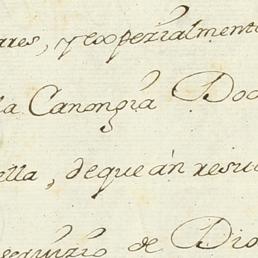 ares, y especialmente
la Canongia Doc
ella, de que án resu
servizio de Dio